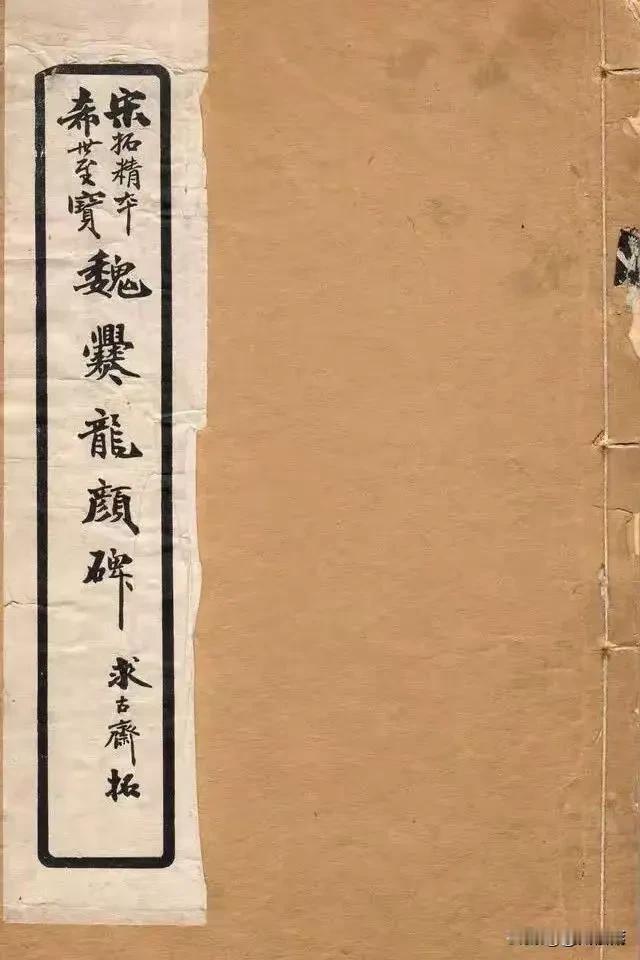 宋拓精本
希世至寶
魏爨龍顔碑
求古齋拓